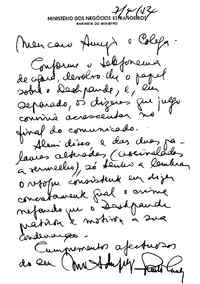 MINISTÉRIO DOS NEGÓCIOS ESTRANGEIROS
GABINETE DO MINISTRO
Meu caro Amigo e Colega
Conforme o telefonema
de agora, devolvo-lhe o papel
sobre o Deshpande, e, em
separado, os dizeres que julgo
convirá acrescentar no
final do comunicado.
Além disso, e das duas pa-
lavras alteradas (assinaladas
a vermelho), só tenho a lembrar
o reforço consistente em dizer
concretamente qual o crime
nefando que o Deshpande
praticou e motivou a sua
condenação.
Cumprimentos afectuosos
do seu